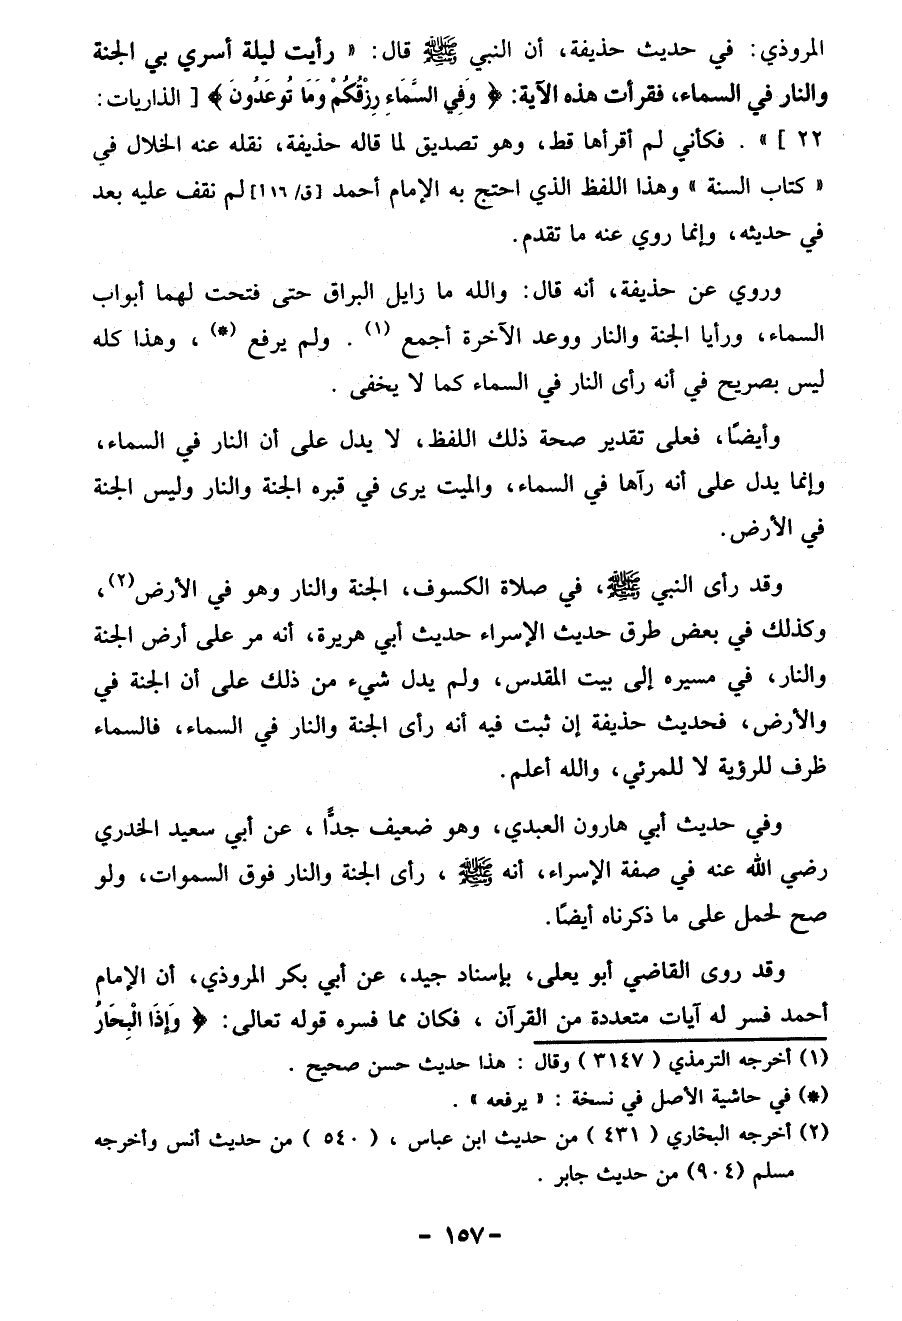 المروذي: في حديث حذيفة، أن النبي ﷺ قال: « رأيت ليلة أسري بي الجنة
والنار في السماء، فقرأت هذه الآية: ﴿ وَفِي السَّمَاءِ رِزْقُكُمْ وَمَا تُوعَدُونَ ﴾ [ الذاريات:
٢٢ ] » . فكأني لم أقرأها قط، وهو تصديق لما قاله حذيفة، نقله عنه الخلال في
« كتاب السنة » وهذا اللفظ الذي احتج به الإمام أحمد [ق/ ١١٦] لم نقف عليه بعد
في حديثه، وإنما روي عنه ما تقدم.
وروي عن حذيفة، أنه قال: والله ما زايل البراق حتى فتحت لهما أبواب
السماء، ورأيا الجنة والنار ووعد الآخرة أجمع (١) . ولم يرفع (*) ، وهذا كله
ليس بصريح في أنه رأى النار في السماء كما لا يخفى .
وأيضًا، فعلى تقدير صحة ذلك اللفظ، لا يدل على أن النار في السماء،
وإنما يدل على أنه رآها في السماء، والميت يرى في قبره الجنة والنار وليس الجنة
في الأرض.
وقد رأى النبي ﷺ، في صلاة الكسوف، الجنة والنار وهو في الأرض(٢)،
وكذلك في بعض طرق حديث الإسراء حديث أبي هريرة، أنه مر على أرض الجنة
والنار، في مسيره إلى بيت المقدس، ولم يدل شيء من ذلك على أن الجنة في
والأرض، فحديث حذيفة إن ثبت فيه أنه رأى الجنة والنار في السماء، فالسماء
ظرف للرؤية لا للمرئي، والله أعلم.
وفي حديث أبي هارون العبدي، وهو ضعيف جدًّا ، عن أبي سعيد الخدري
رضي الله عنه في صفة الإسراء، أنه ﷺ ، رأى الجنة والنار فوق السموات، ولو
صح لحمل على ما ذكرناه أيضًا.
وقد روى القاضي أبو يعلى، بإسناد جيد، عن أبي بكر المروذي، أن الإمام
أحمد فسر له آيات متعددة من القرآن ، فكان مما فسره قوله تعالى: ﴿ وَإِذَا الْبِحَارُ
(١) أخرجه الترمذي ( ٣١٤٧ ) وقال : هذا حديث حسن صحيح .
(*) في حاشية الأصل في نسخة : « يرفعه » .
(٢) أخرجه البخاري ( ٤٣١ ) من حديث ابن عباس ، ( ٥٤٠ ) من حديث أنس وأخرجه
مسلم (٩٠٤) من حديث جابر .
- ١٥٧ -